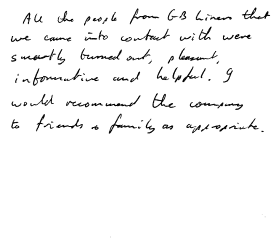 All the people from GB Liners that
we came into contact with were
smartly turned out, pleasant,
informative and helpful. I
would recommend the company
to friends & family as appropriate.